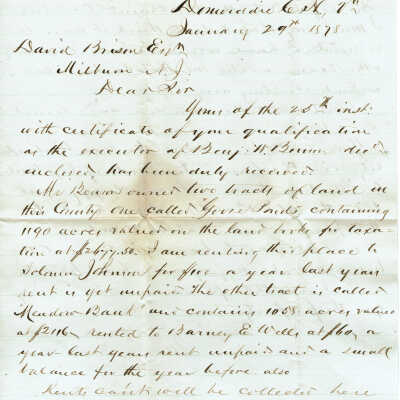 Dinwiddie C. H. Va
January 29th 1878
David Benson Esqr
Milburn N. J.
Dear Sir
Yours of the 25th inst.
with certificate of your qualification
as the executor of Benj. W. Benson decd
enclosed, has been duly received
Mr Benson owned two tracts of land in
this County One called Goose Ponds containing
1190 acres valued on the land books for taxa-
tion at $2677.50. I am renting this place to
Solomon Johnson for five a year last years
rent is yet unpaid. The other tract is called
Meadow Bank and contains 1058 acres valued
at $2116 - rented to Barney E Wells at $60 a
year last years rent unpaid and a small
balance for the year before also
Rents can't well be collected here